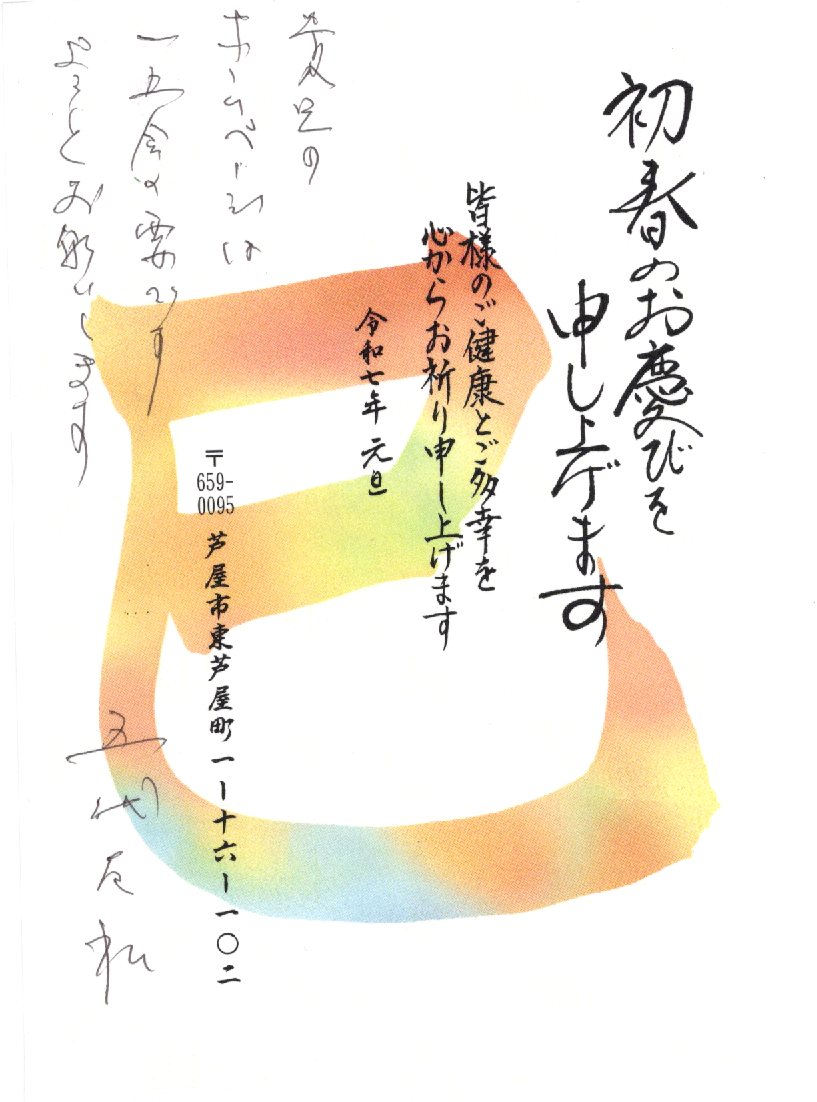 初春のお慶びを
申し上げます
皆様のご健康とご多幸を
心からお祈り申し上げます
令和七年 元旦
巳
〒
659-
0095
芦屋市東芦屋町一ー十六ー一〇二
貴兄の
ホームページは
一五会の要です
よろしくお願いします
五代